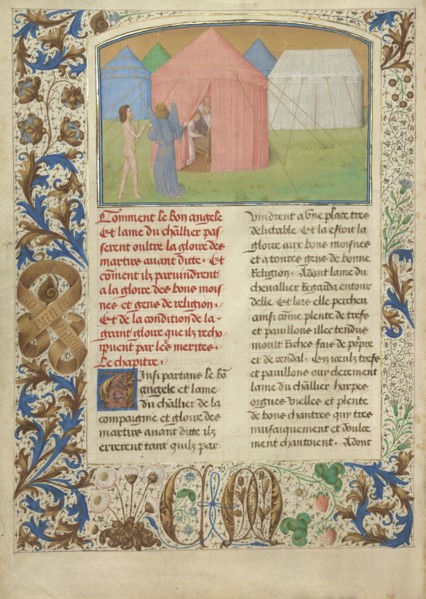 Comment le bon angele
Et lame du chllier pas
serent oultre la gloire des
martirs auant ditte · Et
coment ilz paruindrent
a la gloire des bons mois
nes et gens de religion ·
Et de la condition de la
grant gloire que ilz recho
ipuent par leɞ merites ·
Le chapitre ·
Ainsi partans le bo
angele et lame
du chlłier de la
compaignie et gloire des
martirs auant ditte ilz
errerent tant quilz par
vindrent a vne place tres
delictable · Et la estoit la
gloire aux bons moisnes
et a toutes gens de bonne
Religion · Adont lame du
cheuallier Regarda entour
delle · Et lors elle percheu
ainsi come plente de trefs
et pauillons illec tendus
moult Riches fais de porpre
et de cendal · En iceulx trefs
et pauillons ouy clerement
lame du chlłier harpes
orgues vielles et plente
de bons chantres qui tres
musicaument et doulce
ment chantoient · Adont